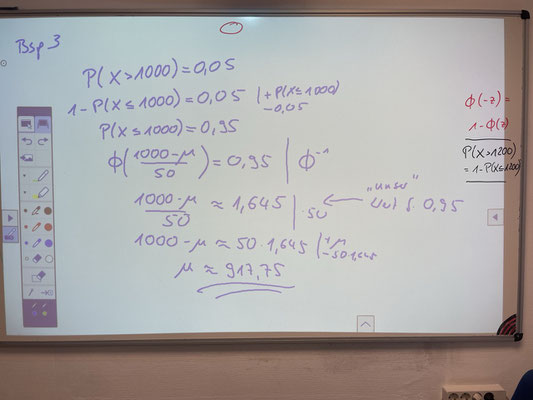 Bsp 3
P(X>1000)=0,05
1-P(X≤1000)=0,05 |+P(X≤1000)
-0,05
P(X≤1000)=0,95
ϕ(1000-μ/50)=0,95 | ϕ⁻¹
1000-μ/50 ≈ 1,645 | ·50 ← "unser"
0,95
1000-μ ≈ 50·1,645 |+μ
-50·1,645
μ ≈ 917,75
ϕ(-z)=
1-ϕ(z)
P(X>1200)
=1-P(X≤1200)